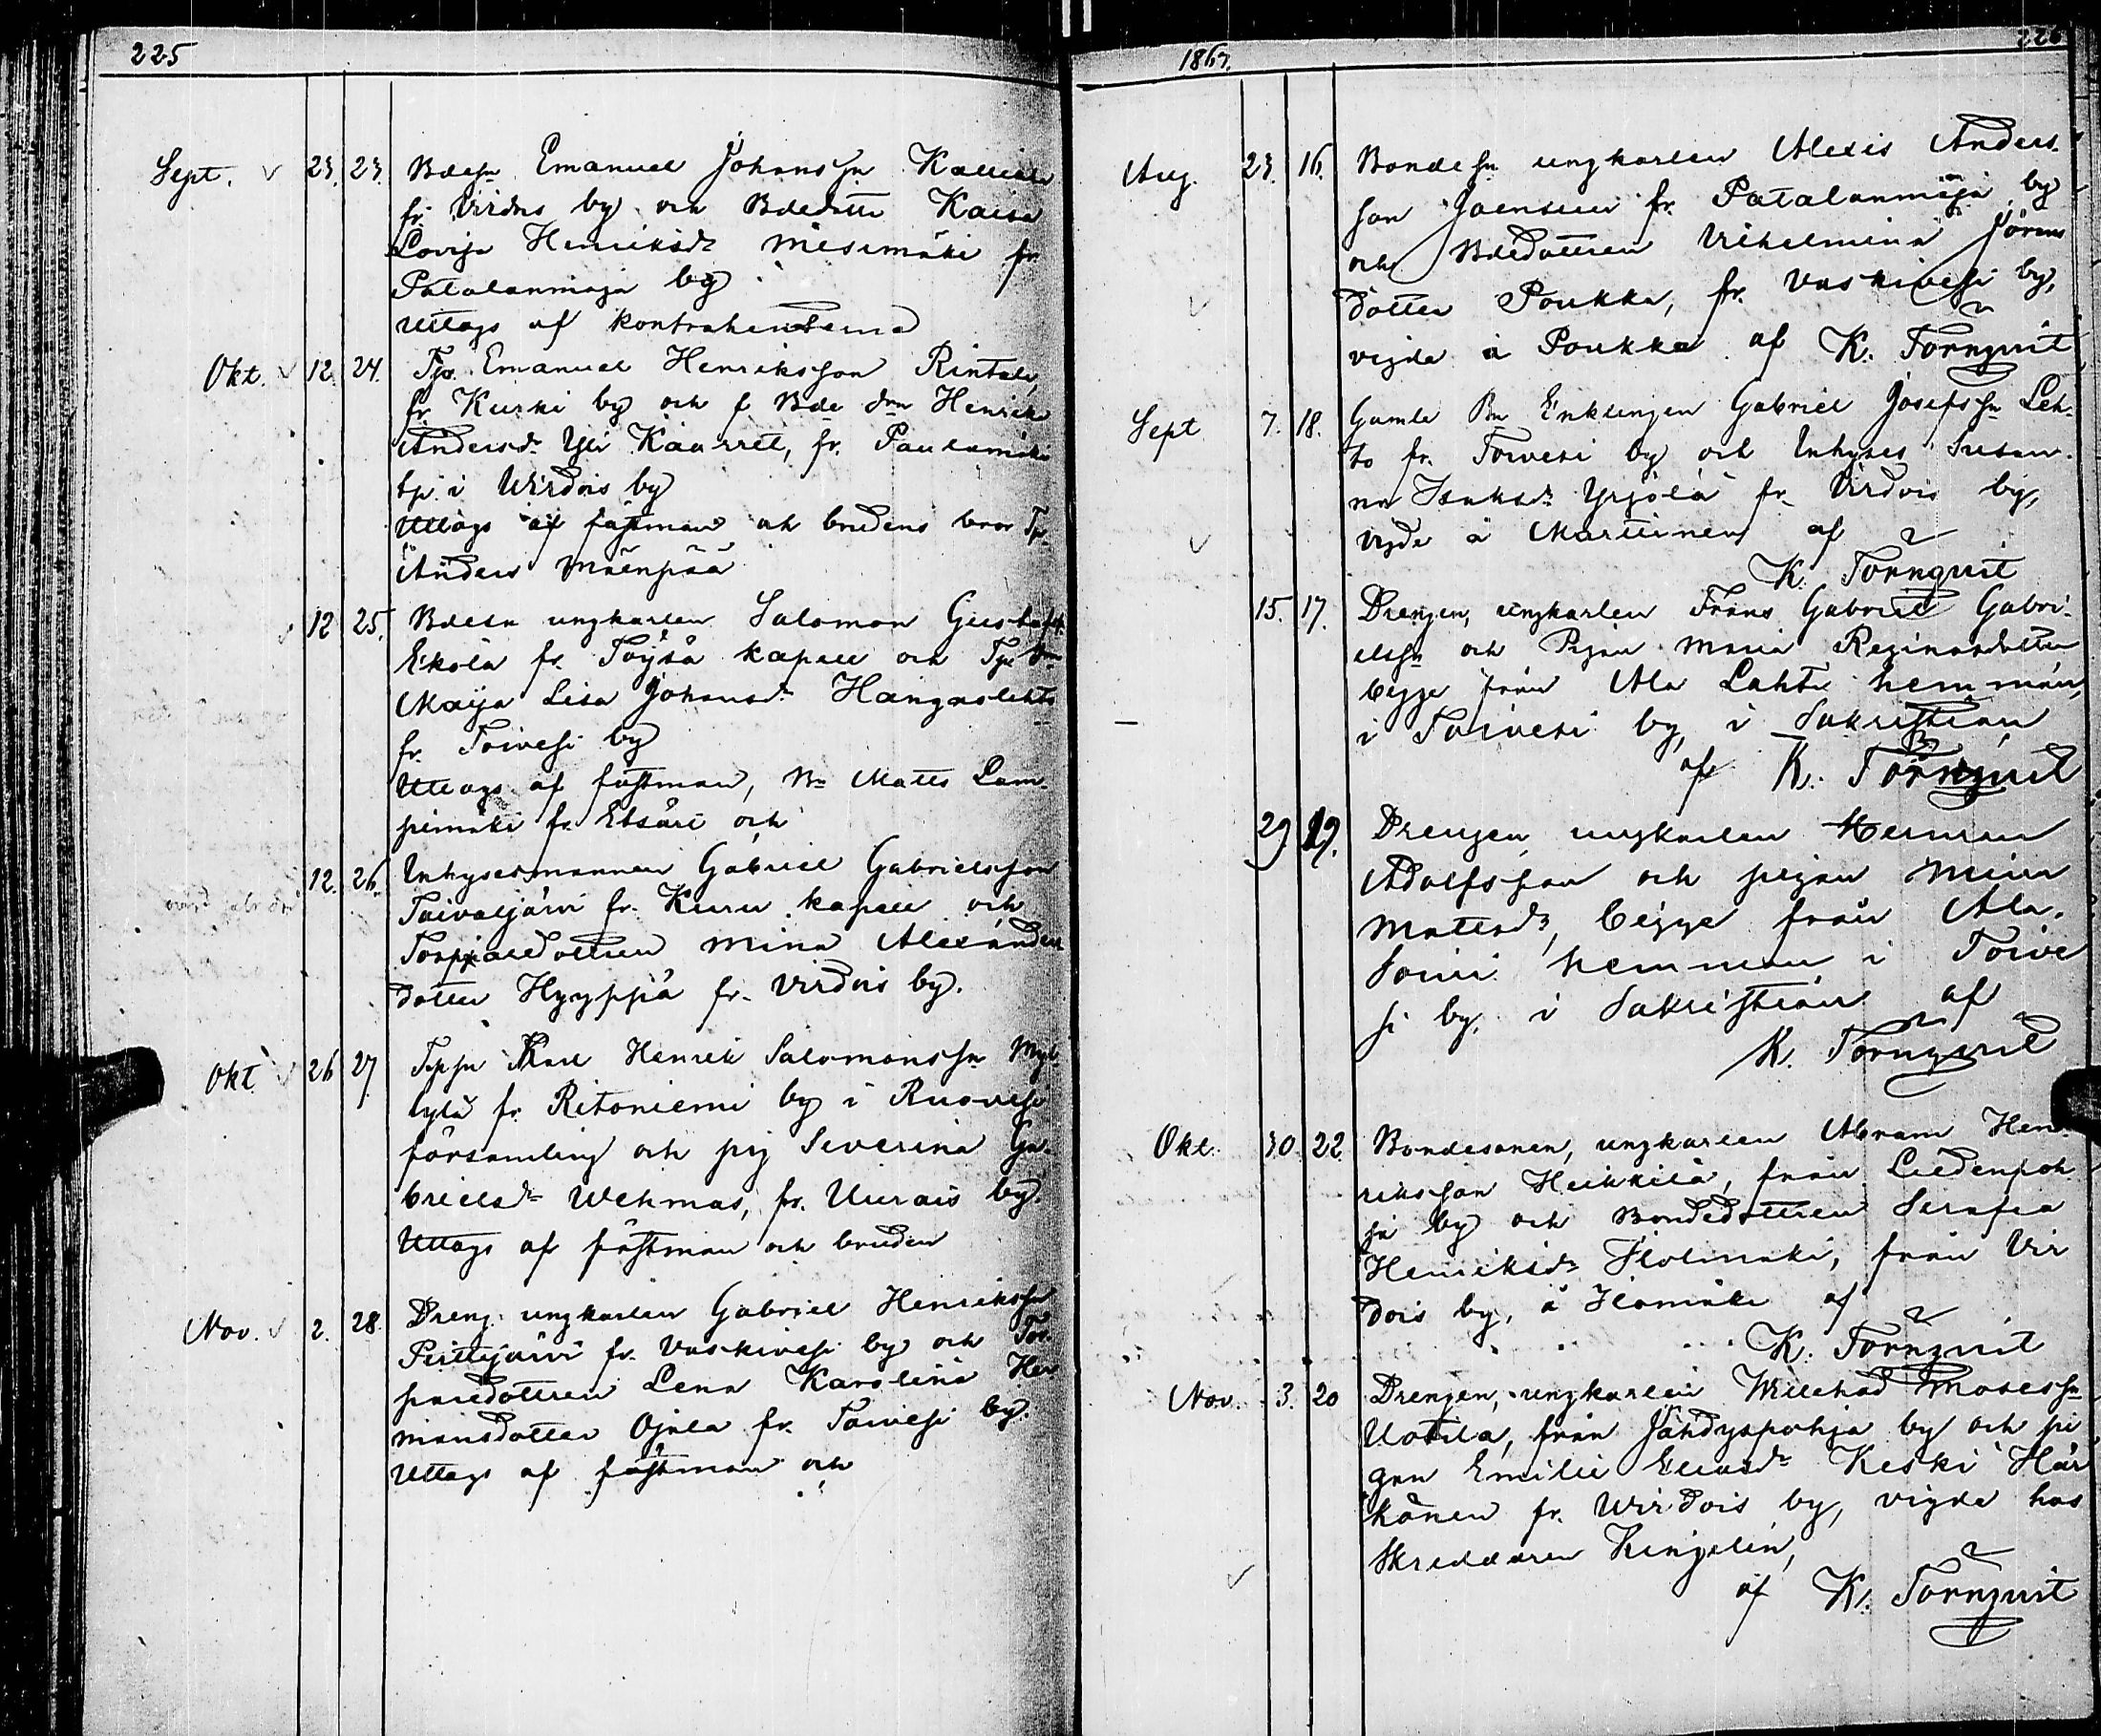 225
Sept. 23. 23. Bdesn Emanuel Johanssn
fr. Virdois by och Bdedottr Kaisa
Lovisa Henriksdr Mesimäki fr
Patalanmaja by
Uttogs af kontrahenterna
Okt. 12. 24. Emanuel Henriksson Rintala,
fr. Kurki by och f Bde Henrika
Andersdr Yli Kaurret, fr.
tp. i Wirdois by
Uttogs af fästman och brudens bror Tp.
Anders Mäenpää
12 25. Bdesn ungkarlen Salomon Gustafss.
Ekola fr. Töysä kapell och
Maija Lisa Johansdr Hangaslehto
fr. Toivesi by
Uttogs af fästman, Bn Matts Lam-
pimäki fr. Etsäri och
12. 26. Inhysesmannen Gabriel Gabrielsson
Taivaljärvi fr. Kuru kapell och
Torpparedottren Mina Alexanders
dotter Hyyppä fr. Virdois by.
Okt 26 27 Tppsn Karl Henrik Salomonssn Myl
lylä fr. Ritoniemi by i Ruovesi
församling och pig Severina Ga-
brielsdr Wehmas, fr. Uurais by.
Uttogs af fästman och bruden
Nov. 2. 28. Dreng. ungkarlen Gabriel Henrikssn
Perttijärvi fr. Vaskivesi by och Tor
paredottren Lena Karolina Her
mansdotter Ojala fr. Toivesi by.
Uttogs af fästman och
1867. 226
Aug. 23. 16. Bondesn ungkarlen Alexis Anders-
son Joensuu fr. Patalanmaja by
och Bdedottren Vilhelmina Jörans
dotter Poukka, fr. Vaskivesi by,
vigda å Poukka af K. Törnqvist
Sept 7. 18. Gamla Bn Enklingen Gabriel Josefssn Leh-
to fr. Toivesi by och Inhyses Susan-
na Isaksdr Yrjölä fr. Virdois by,
vigde å Marttinen af
K. Törnqvist
15. 17. Drengen, ungkarlen Frans Gabriel Gabri-
elssn och Pigan Maria Reginasdotter
begge från Ala Lahti hemman,
i Toivesi by, i Sakristian
af K. Törnqvist
29 19. Drengen, ungkarlen Herman
Adolfsson och pigan Mina
Mattsdr, begge från Ala.
Soini hemman i Toive
si by. i Sakristian af
K. Törnqvist
Okt. 30. 22. Bondesonen, ungkarlen Abram Hen-
riksson Heikkilä, från Liedenpoh
ja by och Bondedottren Serafia
Henriksdr från Vir
dois by, å af
K. Törnqvist
Nov. 3. 20 Drengen, ungkarlen Willehad Mosessn
Uotila, från Jähdyspohja by och pi
gan Emilie Eliasdr Keski Här
könen fr. Wirdois by, vigda hos
Skreddaren Kingelin,
af K. Törnqvist